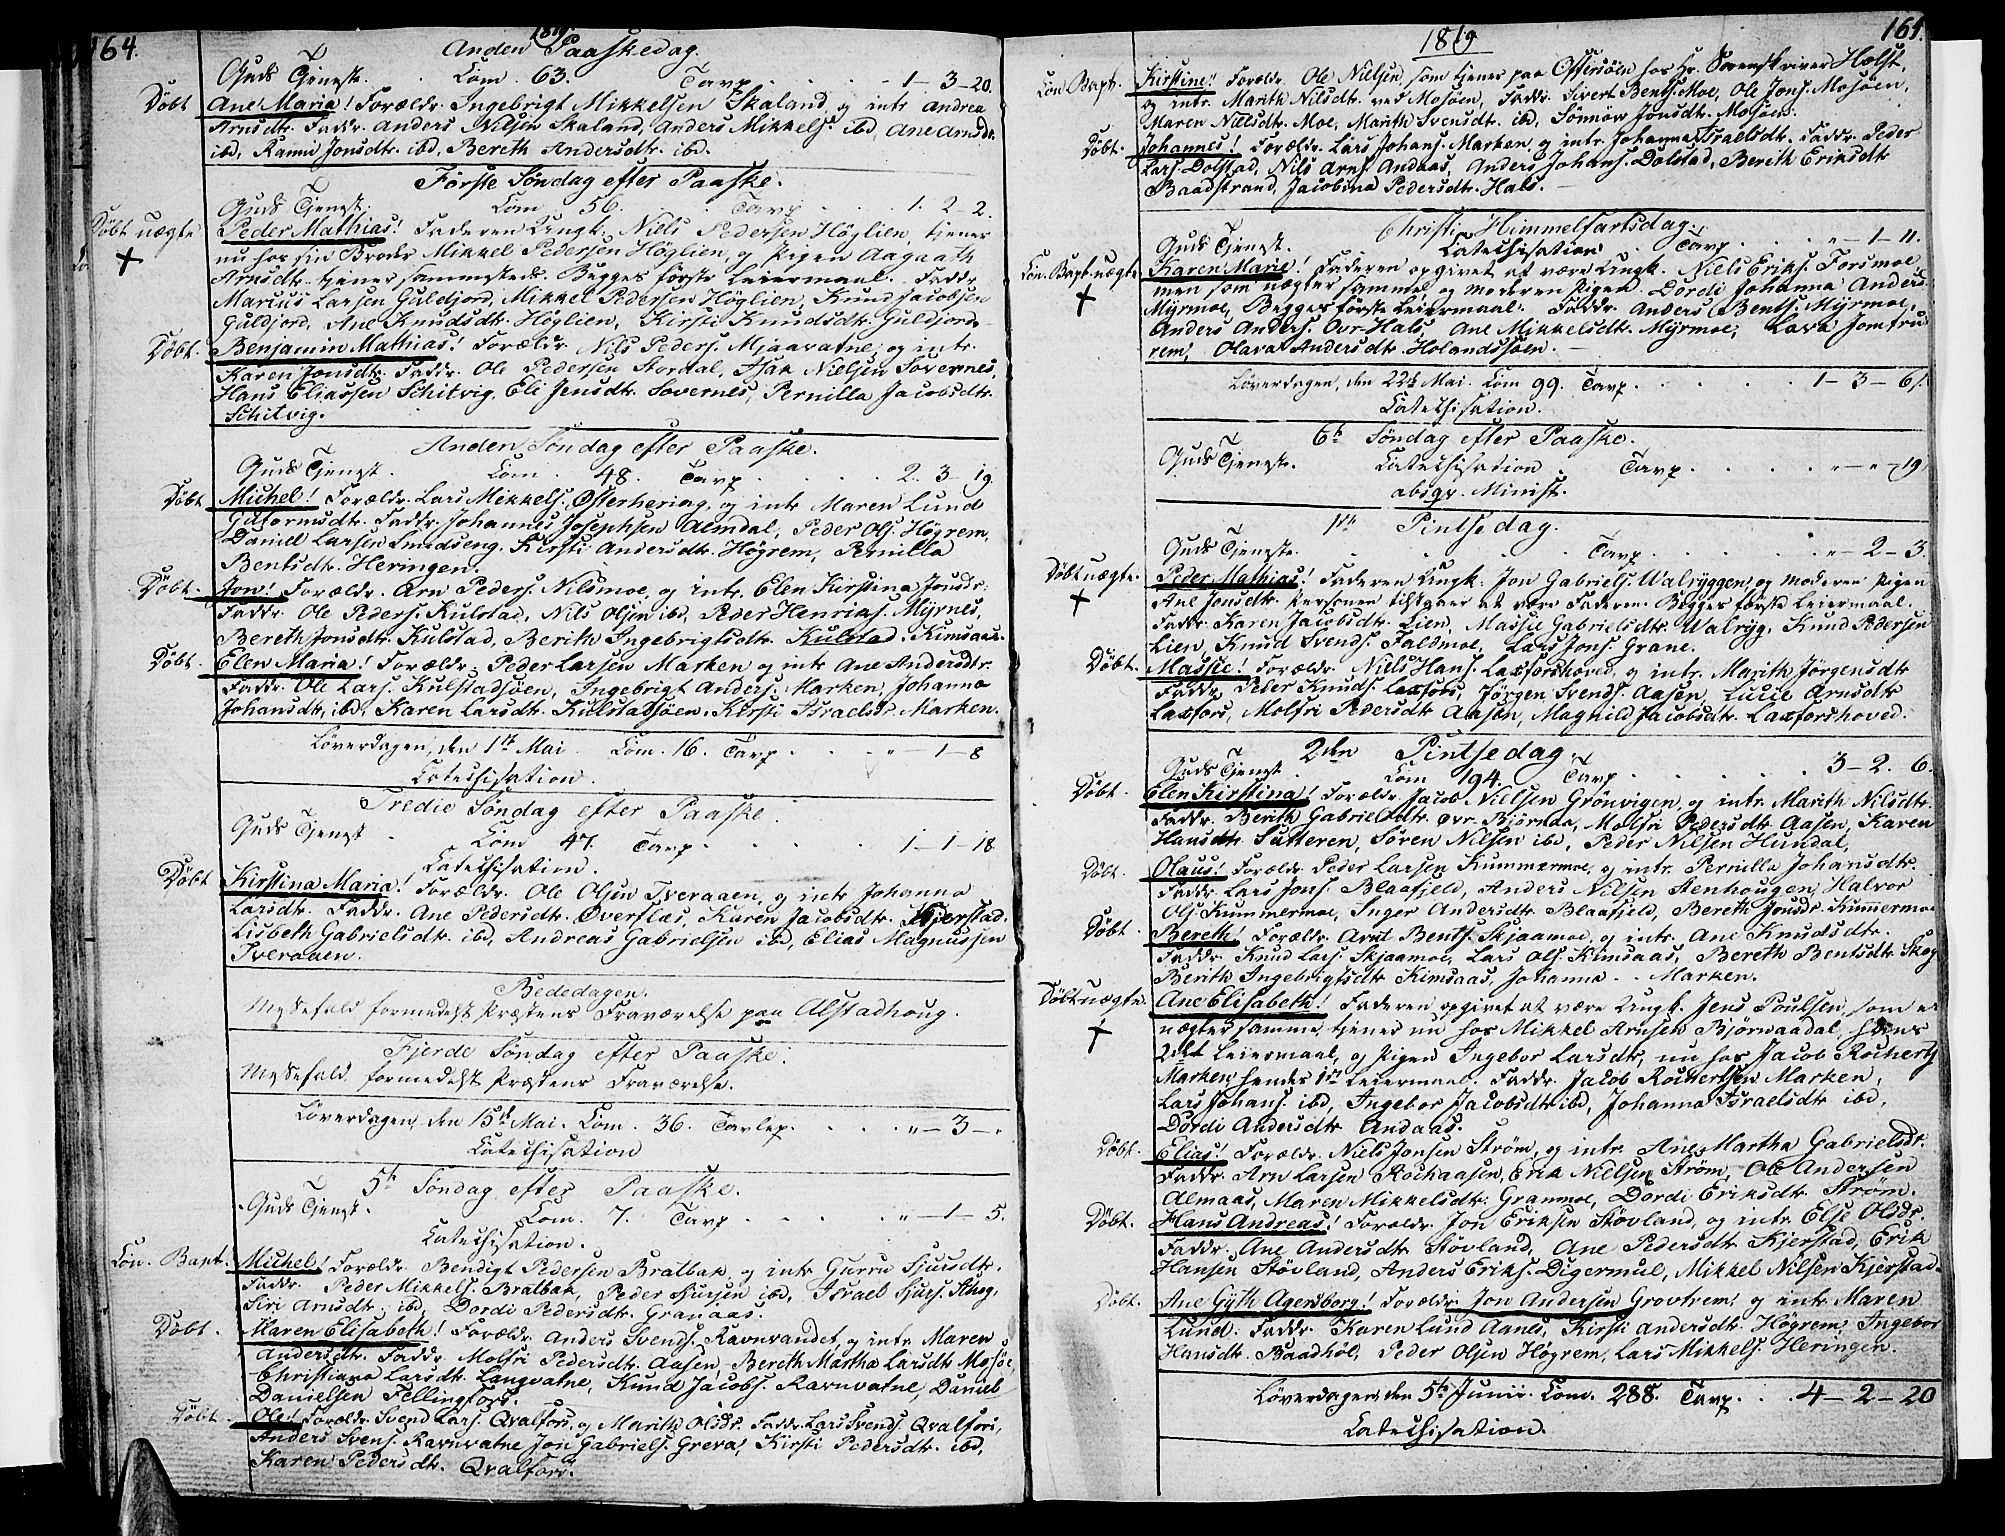 164.
1819
Anden Paaskedag.
Guds Tjeneste. Com. 63. Tavp 1-3-20.
Døbt Ane Maria! Forældr. Ingebrigt Mikkelsen Skaland, og intr Andrea
Arnsdtr. Faddr. Anders Nilsen Skaland, Anders Mikkels. ibd, Ane Arnsdr.
ibd, Rannu Jonsdtr. ibd, Bereth Andersdtr. ibd.
Første Søndag efter Paaske.
Guds Tjenest. Com 56. Tavp 1. 2-2.
Døbt uægte Peder Mathias! Faderen Ungk. Niels Pedersen Höglien, tjener
+ nu hos sin Broder Mikkel Pedersen Höglien, og Pigen Aagaath
Arnsdtr. tjener sammesteds. Begges første Leiermaal. Faddr.
Marcus Larsen Guldjord, Mikkel Pedersen Höglien, Knud Jacobsen
Guldjord, Ane Knudsdtr. Höglien, Kirsti Knudsdtr. Guldjord.
Døbt. Benjamin Mathias! Forældr. Nils Peders. Mjaavatne, og intr.
Karen Jonsdtr. Faddr. Ole Pedersen Stordal, Isak Nielsen Sovernes,
Hans Eliassen Schitvig, Eli Jensdtr. Sovernes, Pernilla Jacobsdtr.
Schitvig.
Anden Søndag efter Paaske.
Guds Tjenest. Com 48. Tavp 2. 3-19.
Døbt Michel! Forældr. Lars Mikkels. Østerhering, og intr Maren Lund
Gutormsdtr. Faddr. Johannes Josephsen Almdal, Peder Ols. Högrem,
Daniel Larsen Smedseng. Kirsti Andersdtr. Högrem, Pernilla
Bentsdtr. Heringen.
Døbt. Jon! Forældr. Arn Peders. Nilsmoe, og intr. Elen Kirstina Jonsdr.
Faddr. Ole Peders. Kulstad, Nils Olsen ibd, Peder Henriks. Myrnes,
Bereth Jonsdtr. Kulstad, Berith Ingebrigtsdtr. Kulstad. Kimsaas.
Døbt. Elen Maria! Forældr. Peder Larsen Marken og intr Ane Andersdtr.
Faddr. Ole Lars. Kulstadsöen, Ingebrigt Anders. Marken, Johanna
Johansdtr, ibd, Karen Larsdtr. Kulstadsöen. Kirsti Israelsdr. Marken.
Løverdagen, den 1te Mai Com. 16. Tavp „-1-8
Catechisation.
Tredie Søndag efter Paaske
Guds Tjenest Com 47. Tavp 1-1-18
Catechisation.
Døbt Kirstina Maria! Forældr. Ole Olsen Tveraaen, og intr Johanna
Larsdtr. Faddr. Ane Pedersdtr. Overflas, Karen Jacobsdtr. Kjerstad.
Lisbeth Gabrielsdtr. ibd, Andreas Gabrielsen ibd, Elias Magnussen
Tveraaen.
Bededagen.
Messefald formedelst Præstens Fraværelse paa Alstadhoug.
Fjerde Søndag efter Paaske.
Messefald formedelst Præstens Fraværelse.
Løverdagen, den 15de Mai. Com. 36. Tavlep. „-3-„
Catechisation
5te Søndag efter Paaske.
Guds Tjenest. Com. 7. Tavp „-1-5.
Catechisation.
Con. Bapt. Michel! Forældr. Bendigt Pedersen Bratbak, og intr Gurru Sjursdtr.
Faddr. Peder Mikkels. Bratbak, Peder Sjursen ibd, Israel Sjurs. Skog,
Siri Arnsdtr. ibd, Dordi Pedersdtr. Granaas.
Døbt. Maren Elisabeth! Forældr. Anders Svends. Ravnvandet, og intr Maren
Andersdtr. Faddr. Molfri Pedersdtr. Aasen, Bereth Martha Larsdtr Mosjöe,
Christiana Larsdtr. Langvatne, Knud Jacobs. Ravnvatne, Daniel
Danielsen Fellingfors.
Døbt. Ole! Forældr. Svend Lars. Qvalfors, og Marith Olsdr. Faddr. Lars Svends. Qvalfors,
Anders Svens. Ravnvatne, Jon Gabriels. Greva, Kirsti Pedersdtr. ibd,
Karen Pedersdtr. Qvalfors.
1819
161.
Con. Bapt. Kirstine! Forældr. Ole Nielsen, som tjener paa Offersöen hos Hr. Sorenskriver Holst,
og intr. Marith Nilsdtr. ved Mosjöen, Faddr. Sivert Bents. Moe, Ole Jons. Mosjöen,
Maren Nielsdtr. Moe, Marith Svensdtr. ibd, Sönnow Jonsdtr. Mosjöen.
Døbt. Johannes! Forældr. Lars Johans. Marken, og intr. Johanna Israelsdtr. Faddr. Peder
Lars. Dolstad, Nils Arns. Andaas, Anders Johans. Dolstad, Bereth Eriksdtr
Baadstrand, Jacobina Pedersdtr. Hals.
Christi Himmelfartsdag.
Guds Tjenest. Catechisation Tavp „-1-11.
Con. Bapt. uægte Karen Marie! Faderen opgivet at være Ungk. Niels Eriks. Forsmoe
+ men som nægter sammes, og Moderen Pigen Dordi Johanna Anders.
Myrmoe, Begges første Leiermaal. Faddr. Anders Bents. Myrmoe,
Anders Anders. Ovr-Hals, Ane Mikkelsdtr. Myrmoe, Lava Jomfru
rem, Olava Andersdtr. Holandssöen.
Løverdagen, den 22de Mai. Com 99. Tavp. 1-3-6.
Catechisation.
6te Søndag efter Paaske.
Guds Tjenest. Catechisation Tavp „-„-19
absqv. Minist.
1te Pintsedag.
Guds Tjeneste. Tavp „-2-3.
Døbt uægte. Peder Mathias! Faderen Ungk. Jon Gabriels. Walryggen, og Moderen Pigen
+ Ane Jonsdtr. Personen tilstaaer at være Faderen. Begges første Leiermaal.
Faddr. Karen Jacobsdtr. Lien, Massie Gabrielsdtr. Walryg, Knud Pedersen
Lien, Knud Svends. Faldmoe, Lars Jons. Grane.
Døbt. Massie! Forældr. Niels Hans. Laxforshoved, og intr. Marith Jörgensdtr
Faddr. Peder Knuds. Laxfors, Jörgen Svends. Aasen, Lucie Arnsdtr
Laxfors, Molfri Pedersdtr Aasen, Magnild Jacobsdtr. Laxforshoved.
2den Pintsedag.
Guds Tjenest Com 194. Tavp 3-2. 6.
Døbt. Elen Kirstina! Forældr. Jacob Nielsen Grönvigen, og intr. Marith Nilsdtr.
Faddr. Berith Gabrielsdtr. Ovr-Björnaa, Molfri Pedersdtr Aasen, Karen
Hansdtr. Sutteren, Sören Nilsen ibd, Peder Nilsen Hundal,
Døbt. Olaus! Forældr. Peder Larsen Kummermoe, og intr. Pernilla Johansdtr.
Faddr. Lars Jons. Blaafjeld, Anders Nilsen Stenhougen, Halvor
Ols. Kummermoe, Inger Andersdtr. Blaafjeld, Bereth Jonsdr. Kummermoe.
Døbt. Bereth! Forældr. Arnt Bents. Skjaamoe, og intr. Ane Knudsdtr.
Faddr. Knud Lars. Skjaamoe, Lars Ols. Kimsaas, Bereth Bentsdtr Skog,
Berith Ingebrigtsdtr Kimsaas, Johanna - - Marken.
Døbt uægte. Ane Elisabeth! Faderen opgivet at være Ungk. Jens Poulsen, som ei
+ nægter samme, tjener nu hos Mikkel Arnsen Björnaadal, hans
2det Leiermaal, og Pigen Ingebor Larsdtr, nu hos Jacob Rocherts.
Marken, hendes 1ste Leiermaal. Faddr. Jacob Rochertsen Marken,
Lars Johans. ibd, Ingebor Jacobsdtr ibd, Johanna Israelsdtr ibd.
Dordi Andersdtr. Andaas.
Døbt. Elias! Forældr. Niels Jonsen Ström, og intr. Ane Martha Gabrielsdr.
Faddr. Arn Larsen Rochaasen, Erik Nielsen Ström, Ole Andersen
Almaas, Maren Mikkelsdtr. Granmoe, Dordi Eriksdtr. Ström.
Døbt. Hans Andreas! Forældr. Jon Eriksen Stövland, og intr. Else Olsdr.
Faddr. Ane Andersdtr. Stövland, Ane Pedersdtr. Kjerstad, Erik
Hansen Stövland, Anders Eriks. Digermul, Mikkel Nilsen Kjerstad.
Døbt. Ane Gyth Agersborg! Forældr. Jon Andersen Grovtrem, og intr. Maren
Lund. Faddr. Karen Lund Aanes, Kirsti Andersdtr. Högrem, Ingebor
Hansdtr. Baadhöl, Peder Olsen Högrem, Lars Mikkels. Heringen.
Løverdagen, den 5te Junii. Com. 288. Tavp. 4-2-20
Catechisation.